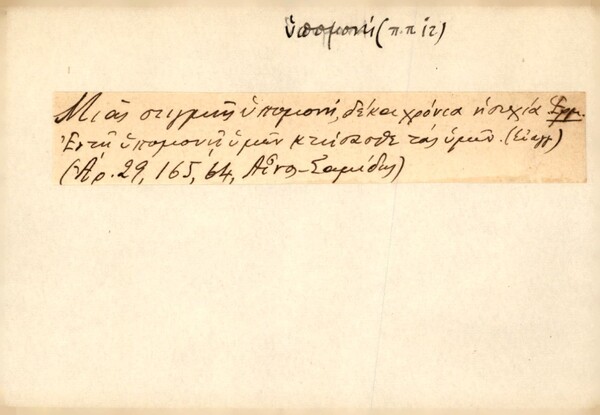 ὑπομονή (π.π ιζ)
Μιᾶς στιγμῆς ὑπομονή, δέκα χρόνια ἡσυχία
Ἐν τῇ ὑπομονῇ ὑμῶν κτήσασθε τάς ὑμῶν. (Εὐαγγ)
(Ἀρ. 29, 165, 64, Αἶνος-Σαμίδης)